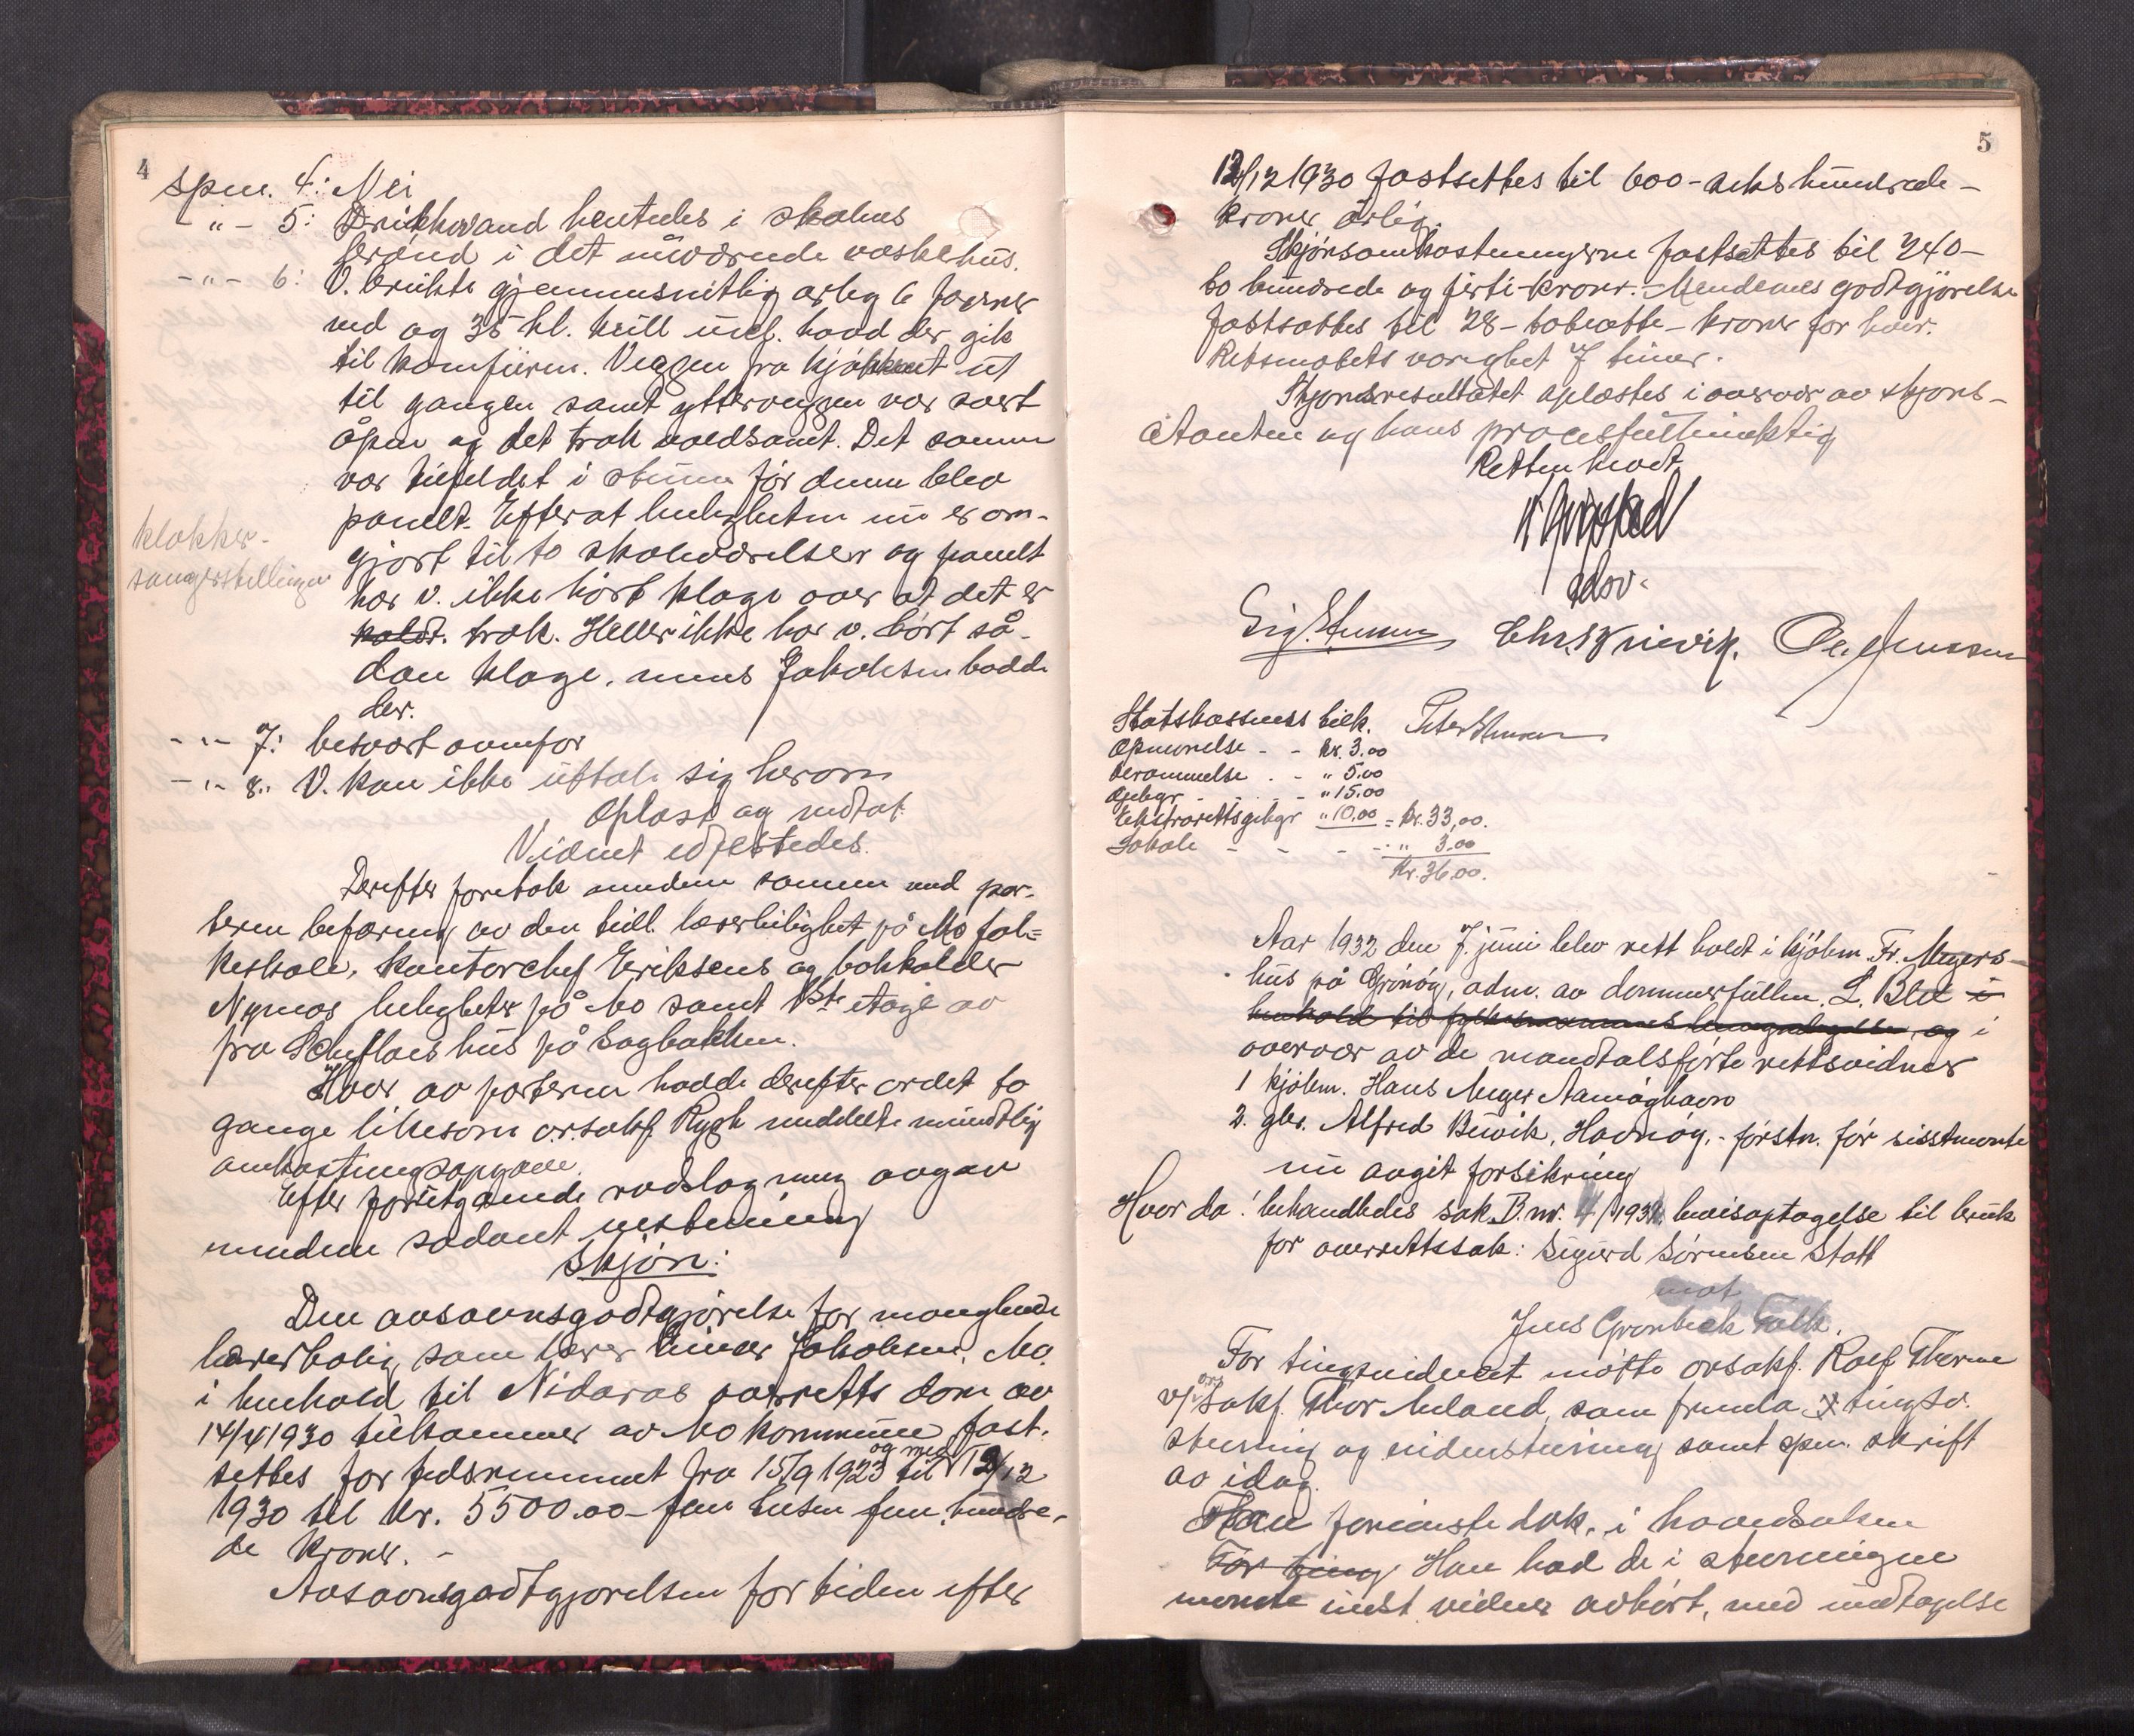 4
spm. 4: Nei
- " - 5: Drikkevand hentedes i skolens
brønd i det nuværende vaskehus.
- " - 6: V. brukte gjennemsnitlig årlig 6 favner
ved og 35 hl. kull incl. hvad der gik
til komfuren. Veggen fra kjøkkenet ut
til gangen samt ytterveggen var svært
åpen og det trak voldsomt. Det samme
var tilfeldet i stuene før denne blev
panelt. Efterat leiligheten nu er om-
gjort til to skoleværelser og panelt
har v. ikke hørt klage over at det er
koldt. trak. Heller ikke har v. hørt så-
dan klage, mens Jakobsen bodde
der.
klokker-
sangerstillingen
- " - 7: besvart ovenfor
- " - 8: V. kan ikke uttale sig herom
Oplæst og vedtat.
Vidnet edfestedes.
Derefter foretok mendene sammen med par-
terne befaring av den tidl. lærerleilighet på Mo fol-
keskole, kontorchef Eriksens og bokholder
Nymos leiligheter på Mo samt 1ste etage av
fra Schuflaes hus på Sagbakken.
Hver av parterne hadde derefter ordet to
gange likesom o.r.sakf. Rygh meddelte mundtlig
omkostningsopgave.
Efter forutgående rådslagning avgav
mendene sådant enstemmig
Skjøn:
Den avsavnsgodtgjørelse for manglende
lærerbolig, som lærer Einer Jakobsen, Mo.
i henhold til Nidaros overretts dom av
14/4 1930 tilkommer av Mo kommune, fast-
settes for tidsrummet fra 15/9 1923 til og med 12/12
1930 til kr. 5500.00 - fem tusen fem hundre-
de kroner. -
Avsavnsgodtgjørelsen for tiden efter
5
12/12 1930 fastsettes til 600 - seks hundrede -
kroner årlig.
Skjønsomkostningerne fastsettes til 240 -
to hundrede og førti - kroner. Mendenes godtgjørelse
fastsattes til 28 - totiotte - kroner for hver.
Retsmøtets varighet 7 timer.
Skjønsresultatet oplæstes i overvær av skjøns-
citanten og hans procesfullmektig
Retten hevet
edsv.
Ole Jensen
Statskassens tilk.
Opnevnelse - - kr. 3.00
berammelse . - " 5.00
Gebyr - - - - " 15.00
Ekstrarettsgebyr " 10.00 = kr. 33,00.
Lokale - - - - " 3.00
Kr. 36.00.
Aar 1932 den 7. juni blev rett holdt i kjøbm. Fr. Meyers
hus på Grønøy, adm. av dommerfullm. L. Blix i
henhold til fylkesmannens bemyndigelse, og i
overvær av de mandtalsførte rettsvidner
1 kjøbm. Hans Meyer Aamøyhavn
2. gbr. Alfred Buvik, Havnøy, - førstn. før sisstnevnte
nu avgit forsikring
Hvor da: behandledes sak B. nr. 4/1932, bevisoptagelse til bruk
for overrettssak: Sigurd Sørensen Stott
mot
Jens Grønbech Falch.
For tingsvidneret møtte orsakf. Rolf Thorne
v/ ors sakf. Thor Meland, som fremla tingsv.
stevning og vidnestevning samt spm. skrift
av idag.
Han foreviste dok. i hovedsaken
For ting Han bad de i stevningen
nevnte vidner avhørt, med undtagelse